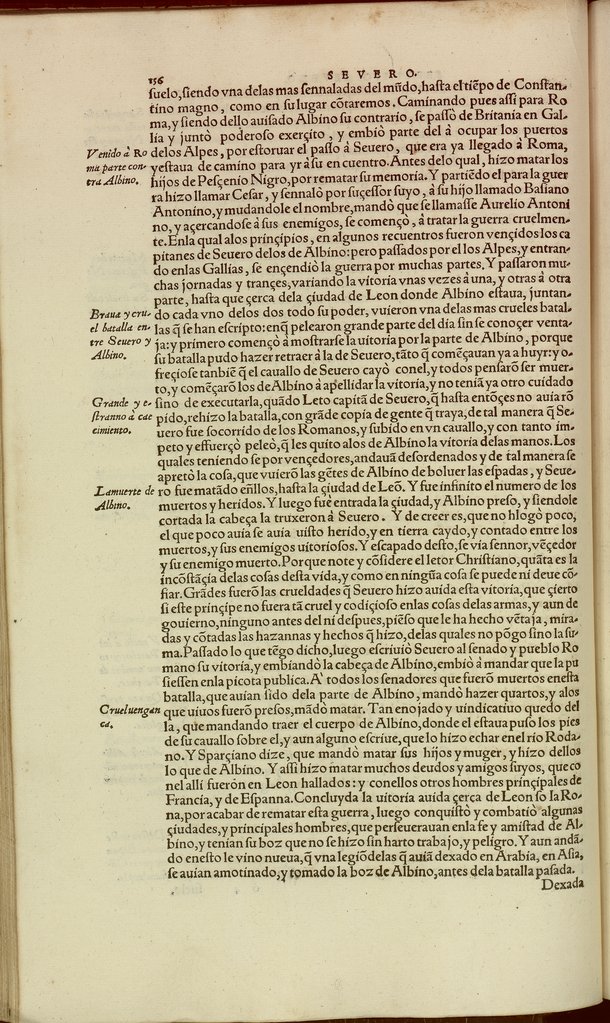 156
SEVERO.
suelo, siendo vna delas mas sennaladas del mũdo, hasta el tiẽpo de Constan-
tino magno, como en su lugar cõtaremos. Caminando pues assi para Ro
ma, y siendo dello auisado Albino su contrario, se passò de Britania en Gal-
lia y juntò poderoso exerçito, y embiò parte del à ocupar los puertos
Venido à Ro
ma parte con-
tra Albino.
delos Alpes, por estoruar el passo à Seuero, que era ya llegado à Roma,
y estaua de camino para yr à su en cuentro. Antes delo qual, hizo matar los
hijos de Pesçenio Nigro, por rematar su memoria. Y partiẽdo el para la guer
ra hizo llamar Cesar, y sennalò por suçessor suyo, à su hijo llamado Basiano
Antonino, y mudandole el nombre, mandò que se llamasse Aurelio Antoni
no, y açercandose à sus enemigos, se començò, à tratar la guerra cruelmen-
te. Enla qual alos prinçipios, en algunos recuentros fueron vençidos los ca
pitanes de Seuero delos de Albino: pero passados por el los Alpes, y entran-
do enlas Gallias, se ençendiò la guerra por muchas partes. Y passaron mu-
chas jornadas y trançes, variando la vitoria vnas vezes à una, y otras à otra
parte, hasta que çerca dela çiudad de Leon donde Albino estaua, juntan-
Braua y cru-
el batalla en-
tre Seuero y
Albino.
do cada vno delos dos todo su poder, vuieron vna delas mas crueles batal-
las q̃ se han escripto: enq̃ pelearon grande parte del dia sin se conoçer venta
ja: y primero començò à mostrarse la uitoria por la parte de Albino, porque
su batalla pudo hazer retraer à la de Seuero, tãto q̃ comẽçauan ya a huyr: y o-
freçiose tanbiẽ q̃ el cauallo de Seuero cayò conel, y todos pensarõ ser muer-
to, y comẽçarõ los de Albino à apellidar la vitoria, y no teniã ya otro cuidado
Grande y e-
stranno à cae
cimiento.
sino de executarla, quãdo Leto capitã de Seuero, q̃ hasta entõçes no auia rõ
pido, rehizo la batalla, con grãde copia de gente q̃ traya, de tal manera q̃ Se-
uero fue socorrido de los Romanos, y subido en vn cauallo, y con tanto im-
petu y effuerço peleò, q̃ les quito alos de Albino la vitoria delas manos. Los
quales teniendo se por vençedores, andauã desordenados y de tal manera se
apretò la cosa, que vuierõ las gẽtes de Albino de boluer las espadas, y Seue-
La muerte de
Albino.
ro fue matãdo eñllos, hasta la çiudad de Leõ. Y fue infinito el numero de los
muertos y heridos. Y luego fue entrada la çiudad, y Albino preso, y siendole
cortada la cabeça la truxeron à Seuero. Y de creer es, que no hlogò poco,
el que poco auia se auia uisto herido, y en tierra caydo, y contado entre los
muertos, y sus enemigos uitoriosos. Y escapado desto, se via sennor, vẽçedor
y su enemigo muerto. Porque note y cõsidere el letor Christiano, quãta es la
incõstãçia delas cosas desta vida, y como en ningũa cosa se puede ni deue cõ-
fiar. Grãdes fuerõ las crueldades q̃ Seuero hizo auida esta vitoria, que çierto
si este prinçipe no fuera tã cruel y codiçioso enlas cosas delas armas, y aun de
gouierno, ninguno antes del ni despues, piẽso que le ha hecho vẽtaja, mira-
das y cõtadas las hazannas y hechos q̃ hizo, delas quales no põgo sino la su-
ma. Passado lo que tẽgo dicho, luego escriuiò Seuero al senado y pueblo Ro
mano su vitoria, y embiandò la cabeça de Albino, embiò à mandar que la pu
siessen enla picota publica. A' todos los senadores que fuerõ muertos enesta
batalla, que auian sido dela parte de Albino, mandò hazer quartos, y alos
Crueluengan
ca.
que uiuos fuerõ presos, mãdò matar. Tan enojado y uindicatiuo quedo del
la, que mandando traer el cuerpo de Albino, donde el estaua puso los pies
de su cauallo sobre el, y aun alguno escriue, que lo hizo echar enel rio Roda-
no. Y Sparçiano dize, que mandò matar sus hijos y muger, y hizo dellos
lo que de Albino. Y assi hizo matar muchos deudos y amigos suyos, que co
nel alli fuerõn en Leon hallados: y conellos otros hombres prinçipales de
Francia, y de Espanna. Concluyda la uitoria auida çerca de Leon so la Ro-
na, por acabar de rematar esta guerra, luego conquistò y combatiò algunas
çiudades, y principales hombres, que perseuerauan enla fe y amistad de Al-
bino, y tenian su boz que no se hizo sin harto trabajo, y peligro. Y aun andã-
do enesto le vino nueua, q̃ vna legiõ delas q̃ auiã dexado en Arabia, en Asia,
se auian amotinado, y tomado la boz de Albino, antes dela batalla pasada.
Dexada